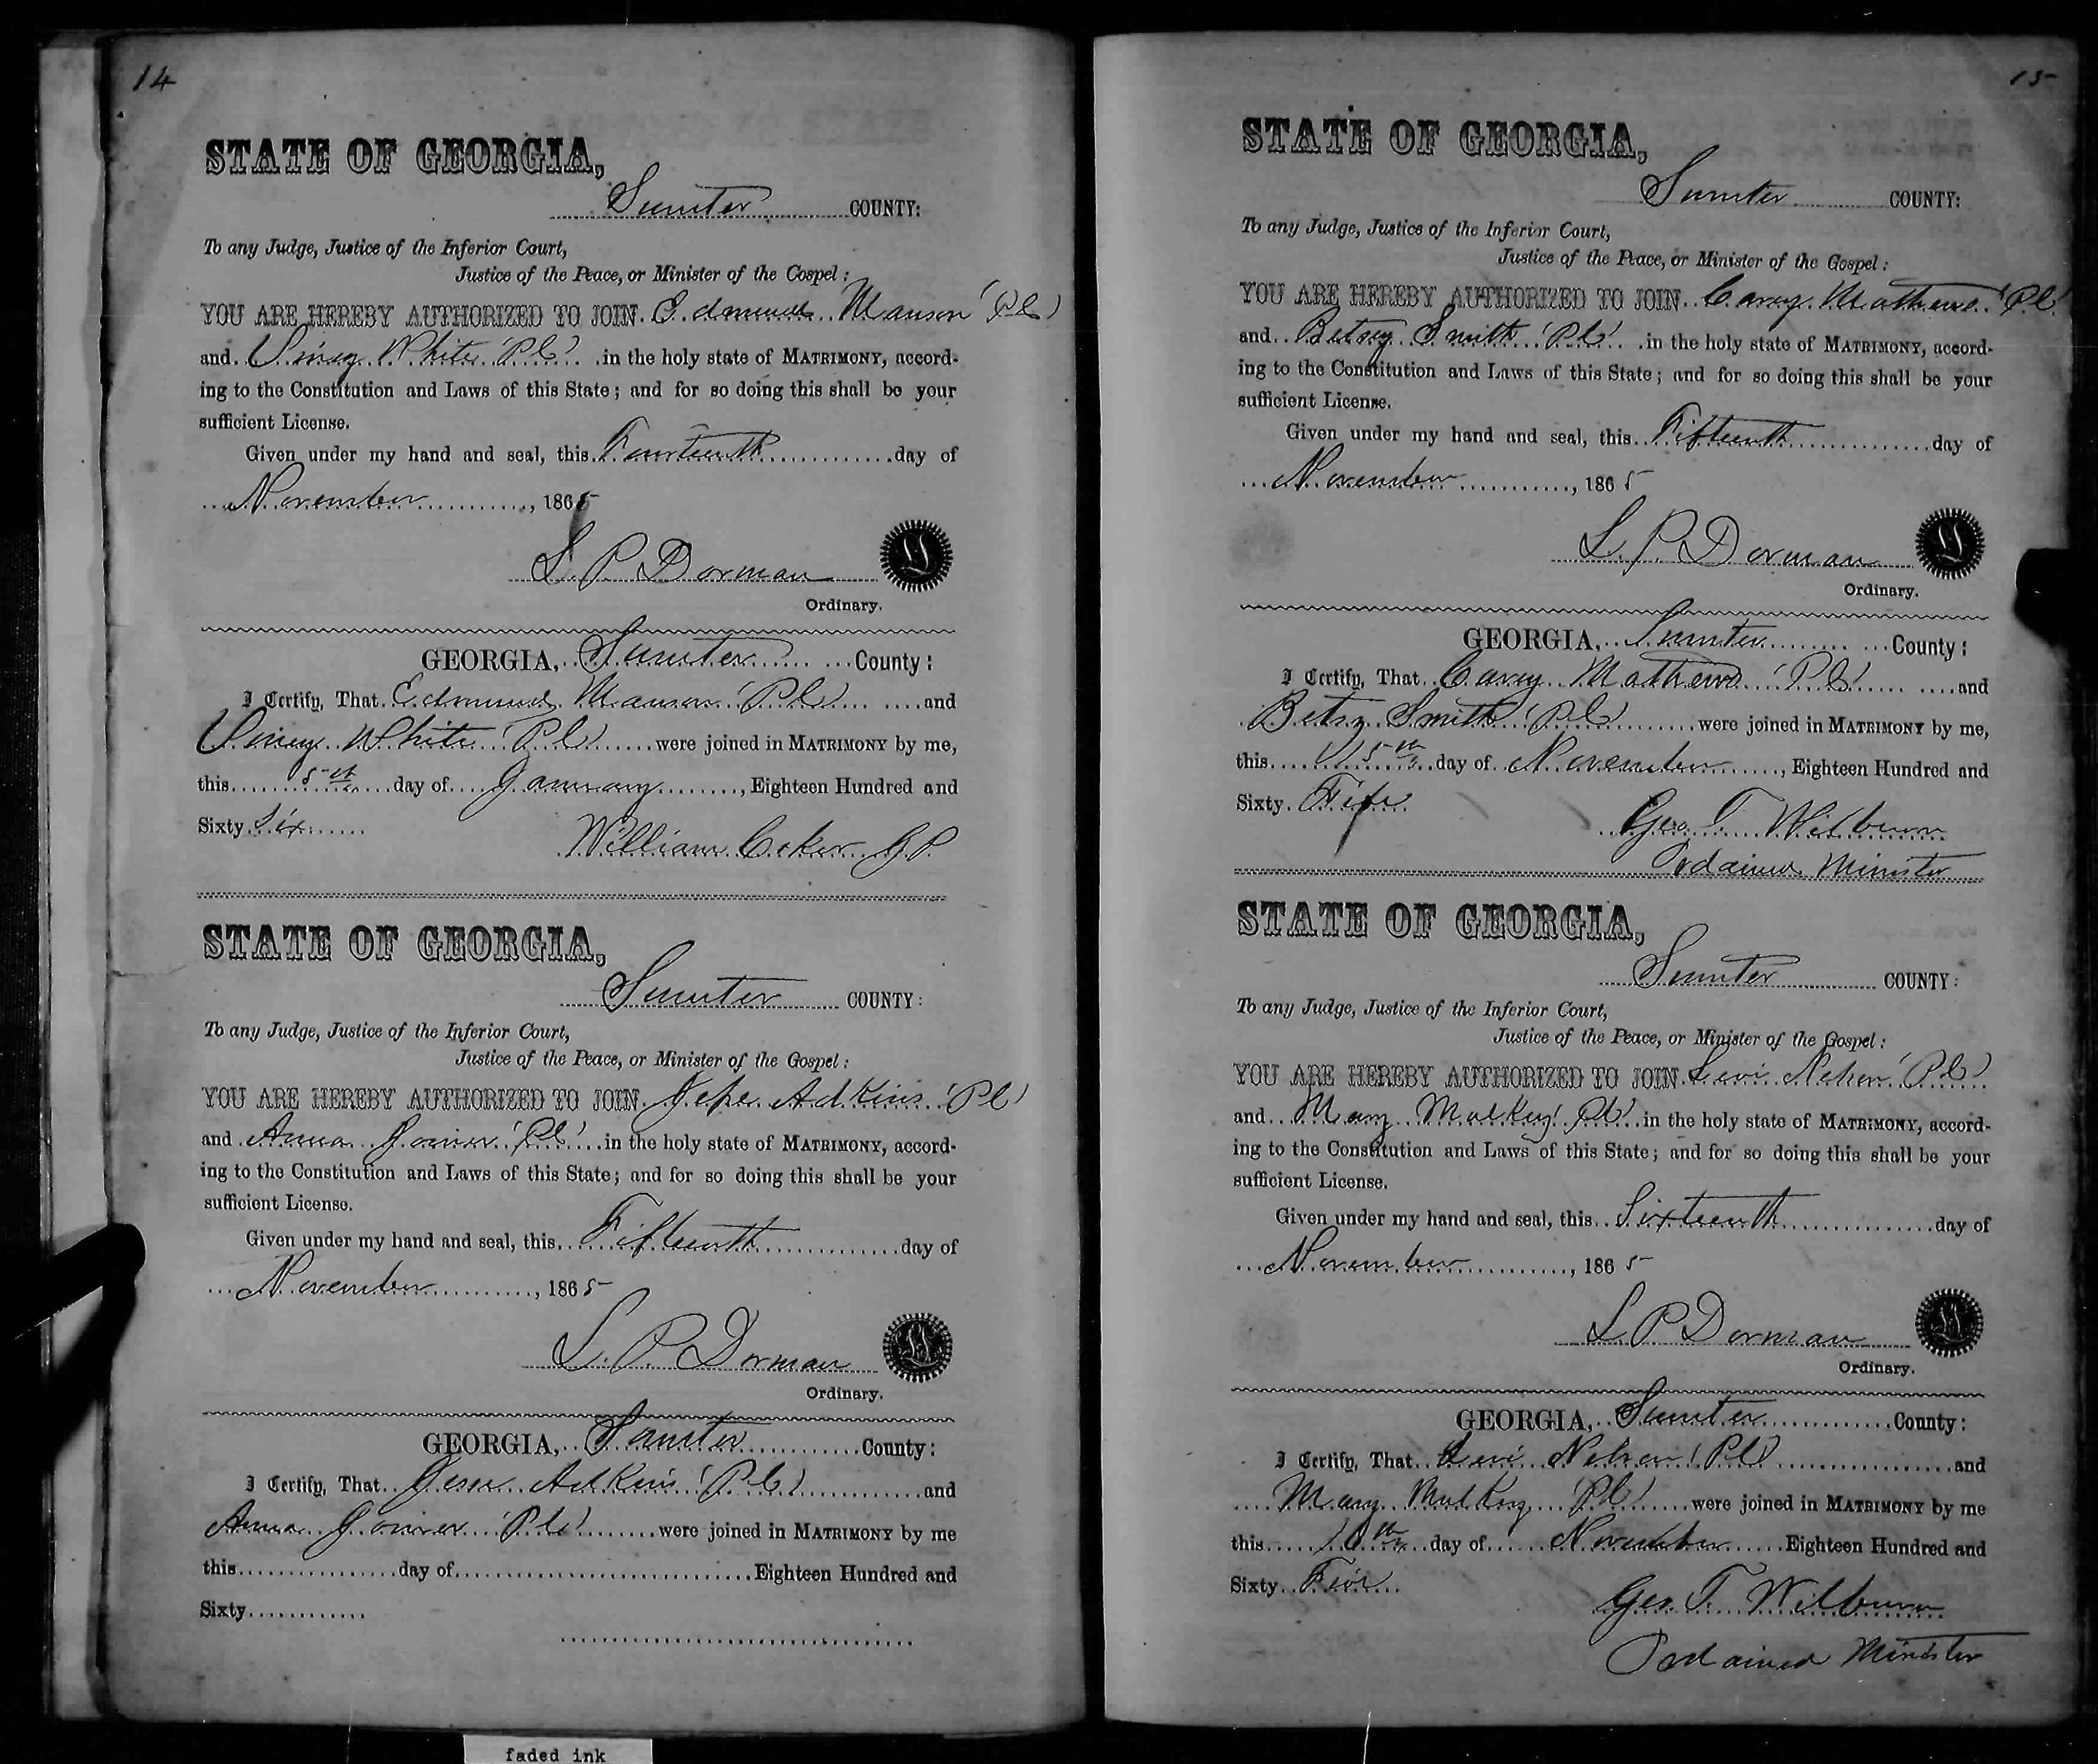 14
STATE OF GEORGIA,
Sumter COUNTY:
To any Judge, Justice of the Inferior Court,
Justice of the Peace, or Minister of the Gospel:
YOU ARE HEREBY AUTHORIZED TO JOIN Edmund Manson (P.C.)
and Viney White (P.C.) in the holy state of MATRIMONY, accord-
ing to the Constitution and Laws of this State; and for so doing this shall be your
sufficient License.
Given under my hand and seal, this Fourteenth day of
November, 1865
L. P. Dorman
Ordinary.
GEORGIA, Sumter County:
I Certify, That Edmund Manson (P.C.) and
Viney White (P.C.) were joined in MATRIMONY by me,
this 5th day of January, Eighteen Hundred and
Sixty Six
William Coker J.P.
STATE OF GEORGIA,
Sumter COUNTY:
To any Judge, Justice of the Inferior Court,
Justice of the Peace, or Minister of the Gospel:
YOU ARE HEREBY AUTHORIZED TO JOIN Jesse Adkins (P.C.)
and Anna Joiner (P.C.) in the holy state of MATRIMONY, accord-
ing to the Constitution and Laws of this State; and for so doing this shall be your
sufficient License.
Given under my hand and seal, this Fifteenth day of
November, 1865
L. P. Dorman
Ordinary.
GEORGIA, Sumter County:
I Certify, That Jesse Adkins (P.C.) and
Anna Joiner (P.C.) were joined in MATRIMONY by me
this day of Eighteen Hundred and
Sixty
15
STATE OF GEORGIA,
Sumter COUNTY:
To any Judge, Justice of the Inferior Court,
Justice of the Peace, or Minister of the Gospel:
YOU ARE HEREBY AUTHORIZED TO JOIN Carey Mathews (P.C.)
and Betsey Smith (P.C.) in the holy state of MATRIMONY, accord-
ing to the Constitution and Laws of this State; and for so doing this shall be your
sufficient License.
Given under my hand and seal, this Fifteenth day of
November, 1865
L. P. Dorman
Ordinary.
GEORGIA, Sumter County:
I Certify, That Carey Mathews (P.C.) and
Betsy Smith (P.C.) were joined in MATRIMONY by me,
this 15th day of November, Eighteen Hundred and
Sixty Five
Geo. T. Wilburn
Ordained Minister
STATE OF GEORGIA,
Sumter COUNTY:
To any Judge, Justice of the Inferior Court,
Justice of the Peace, or Minister of the Gospel:
YOU ARE HEREBY AUTHORIZED TO JOIN Levi Nelson (P.C.)
and Mary Mulkey (P.C.) in the holy state of MATRIMONY, accord-
ing to the Constitution and Laws of this State; and for so doing this shall be your
sufficient License.
Given under my hand and seal, this Sixteenth day of
November, 1865
L. P. Dorman
Ordinary.
GEORGIA, Sumter County:
I Certify, That Levi Nelson (P.C.) and
Mary Mulkey (P.C.) were joined in MATRIMONY by me
this 16th day of November Eighteen Hundred and
Sixty Five
Geo. T. Wilburn
Ordained Minister
faded ink